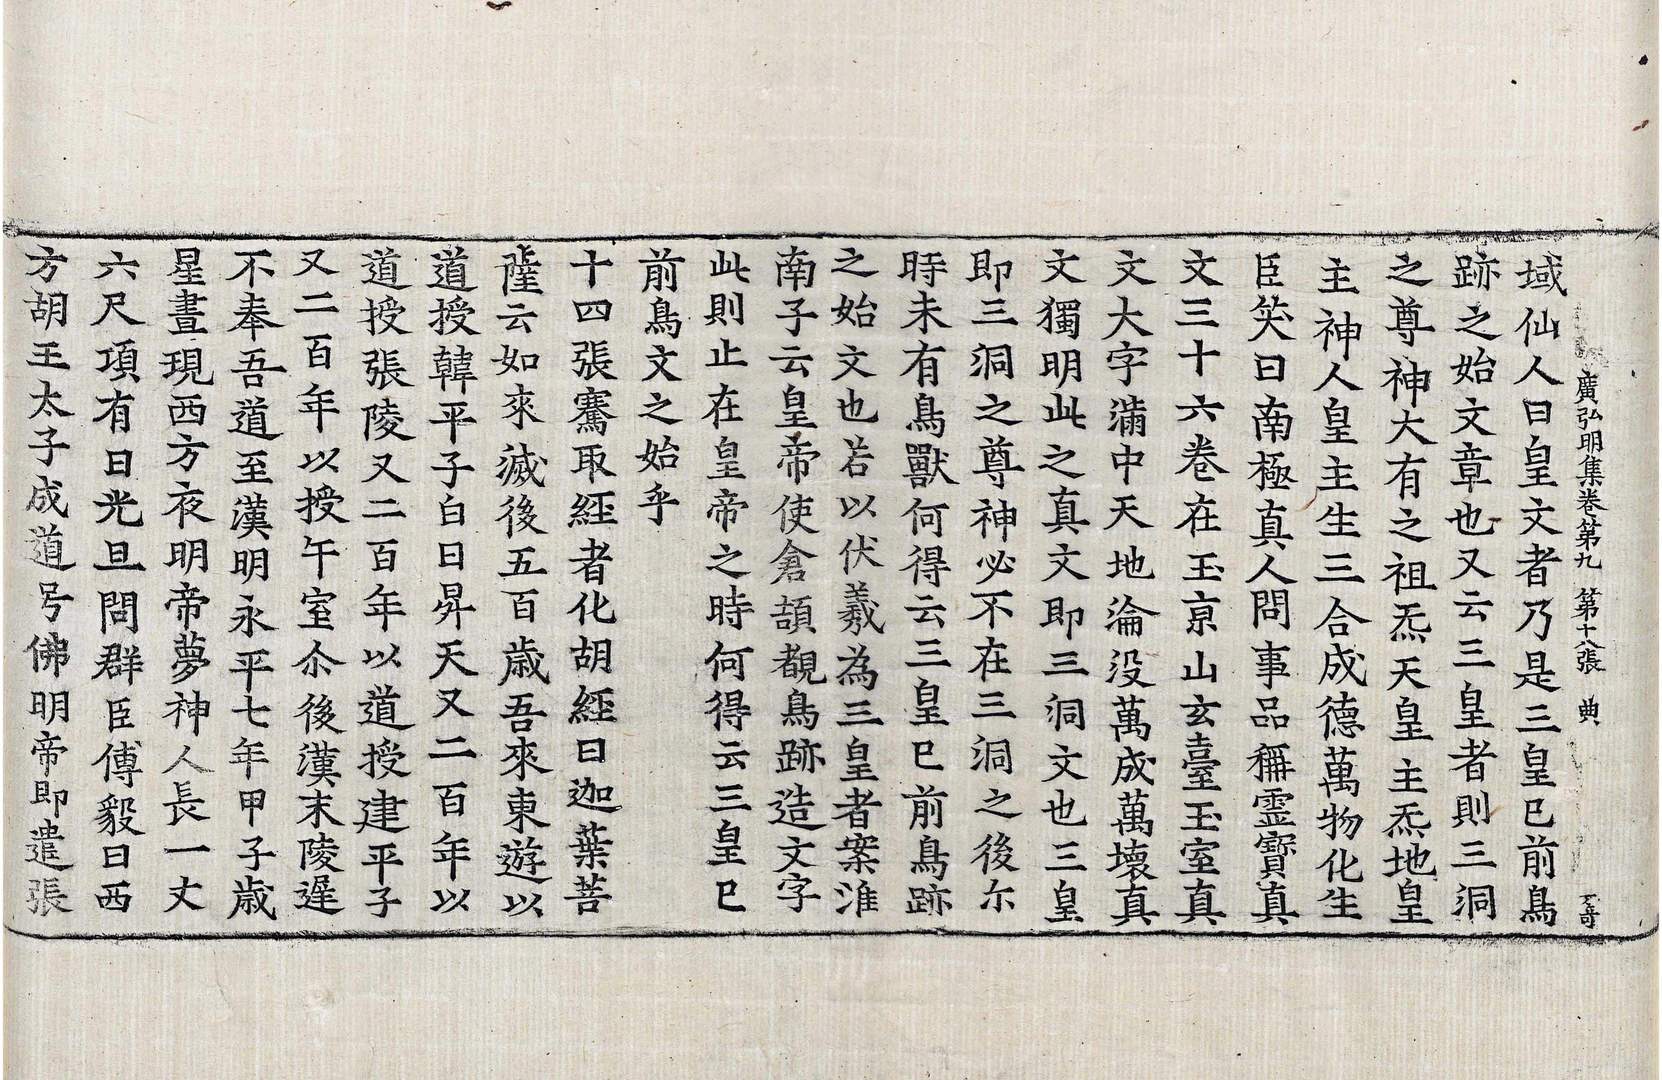 廣弘明集卷第九 第十八張 典
域仙人曰皇文者乃是三皇已前鳥
跡之始文章也又云三皇者則三洞
之尊神大有之祖炁天皇主炁地皇
主神人皇主生三合成德萬物化生
臣笑曰南極真人問事品稱靈寶真
文三十六卷在玉京山玄臺玉室真
文大字滿中天地淪没萬成萬壞真
文獨明此之真文即三洞文也三皇
即三洞之尊神必不在三洞之後尒
時未有鳥獸何得云三皇已前鳥跡
之始文也若以伏羲為三皇者案淮
南子云皇帝使倉頡覩鳥跡造文字
此則止在皇帝之時何得云三皇已
前鳥文之始乎
十四張騫取經者化胡經曰迦葉菩
薩云如來滅後五百歲吾來東遊以
道授韓平子白日昇天又二百年以
道授張陵又二百年以道授建平子
又二百年以授午室尒後漢末陵遲
不奉吾道至漢明永平七年甲子歲
星晝現西方夜明帝夢神人長一丈
六尺項有日光旦問群臣傅毅曰西
方胡王太子成道号佛明帝即遣張